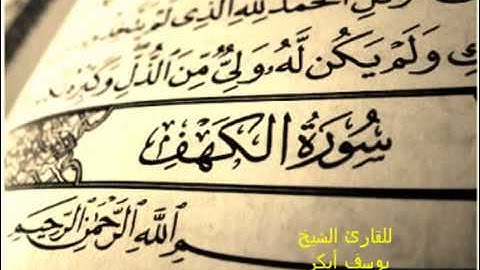 وَقُلِ الْحَمْدُ لِلَّهِ الَّذِي لَمْ يَتَّخِذْ
وَلَمْ يَكُن لَّهُ وَلِيٌّ مِّنَ الذُّلِّ وَكَبِّرْهُ
سُورَةُ الكَهْفِ
اللَّهِ الرَّحْمَٰنِ الرَّحِيمِ
للقارئ الشيخ
يوسف ابكر